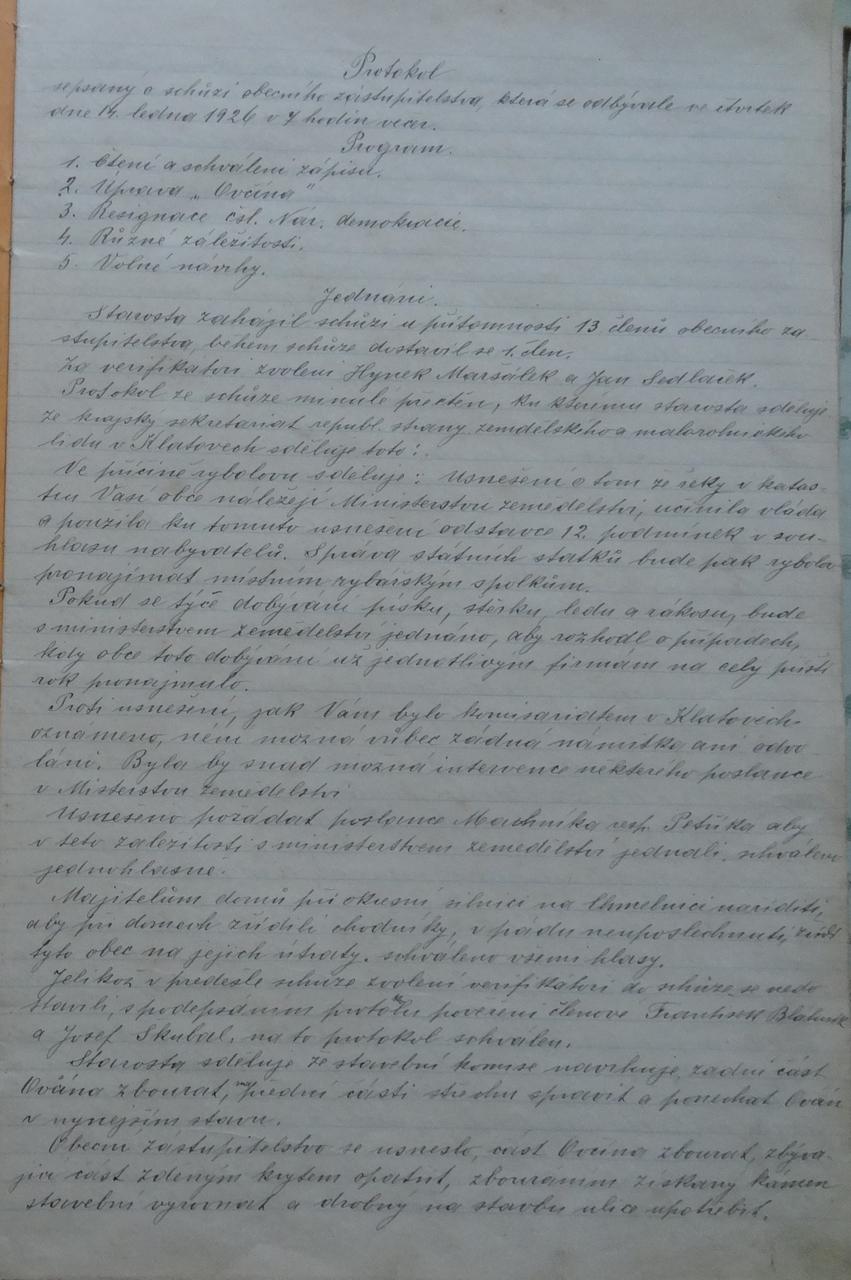 Protokol
sepsaný o schůzi obecního zástupitelstva, která se odbývala ve čtvrtek
dne 14. ledna 1926 v 7 hodin večer.
Program.
1. Čtení a schválení zápisu.
2. Úprava „Ovčína"
3. Resignace čsl. Nár. demokracie.
4. Různé záležitosti.
5. Volné návrhy.
Jednání.
Starosta zahájil schůzi u přítomnosti 13 členů obecního za-
stupitelstva, během schůze dostavil se 1. člen.
Za verifikátori zvoleni Hynek Maršálek a Jan Sedláček.
Protokol ze schůze minulé přečten, ku kterému starosta sděluje
že krajský sekretariat republ. strany zemdělského a malorolnického
lidu v Klatovech sděluje toto:
Ve příčině rybolovu sděluje: Usnešení o tom že řeky v katas-
tru Vaší obce náležejí Ministerstvu zemědělství, učinila vláda
a použila ku tomuto usnesení odstavce 12. podmínek v sou-
hlasu nabyvatelů. Správa státních statků bude pak rybolov
pronajímat místním rybářským spolkům.
Pokud se týče dobývání písku, štěrku, ledu a rákosu, bude
s ministerstvem zemědělství jednáno, aby rozhodl o případech,
kdy obce toto dobývání už jednotlivým firmám na celý příští
rok pronajmulo.
Proti usnešení, jak Vám bylo komisariatem v Klatovech
oznámeno, není možná vůbec žádná námitka ani odvo-
lání. Byla by snad možná intervence některého poslance
v Misterstvu zemědělství
Usneseno požádat poslance Machníka resp. Petříka aby
v této záležitosti s ministerstvem zemědělství jednali, schváleno
jednohlasně.
Majitelům domů při okresní silnici na Chmelnici naříditi,
aby při domech zřídili chodníky, v pádu neuposlechnutí, zřídí
tyto obec na jejich útraty. schváleno všemi hlasy.
Jelikož v předešlé schůze zvolení verifikátoři do schůze se nedo-
stavili, s podepsáním protokolu pověřeni členove František
a Josef Skubal, na to protokol schválen.
Starosta sděluje že stavební komise navrhuje zadní část
Ovčína zbourat, na přední části střechu spravit a ponechat Ovčín
v nynejším stavu.
Obecní zástupitelstvo se usneslo, část Ovčína zbourat, zbýva-
jící část zděným krytem opatřit, zbouráním získaný kámen
stavební vyrovnat a drobný na stavbu ulice upotřebit.